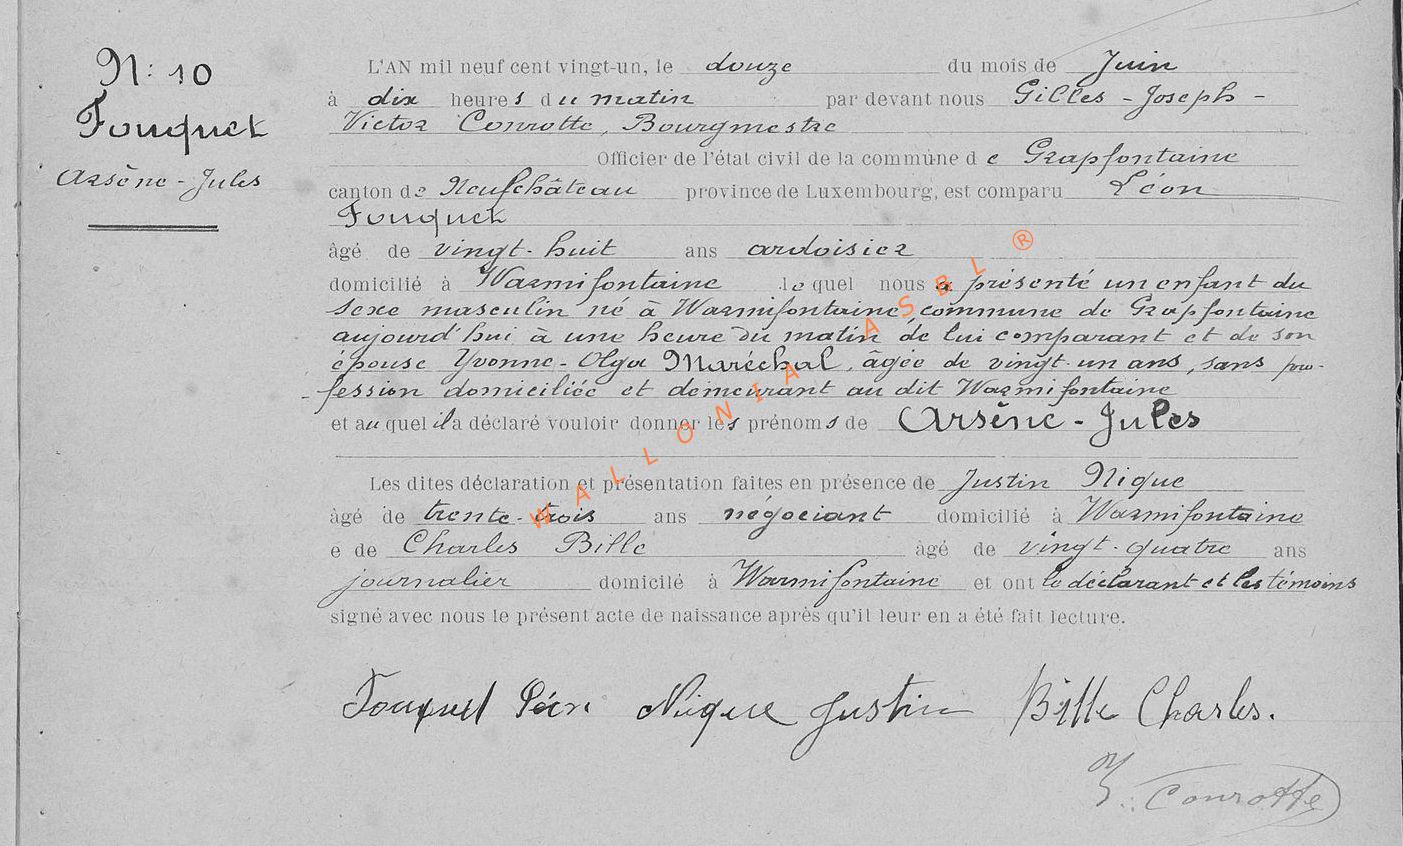 N: 10
Fouquet
Arsène-Jules
L'AN mil neuf cent vingt-un, le douze du mois de Juin
à dix heures du matin par devant nous Gilles-Joseph-
Victor Conrotte, Bourgmestre
Officier de l'état civil de la commune de Grapfontaine
canton de Neufchâteau province de Luxembourg, est comparu Léon
Fouquet
âgé de vingt-huit ans ardoisier
domicilié à Warmifontaine lequel nous a présenté un enfant du
sexe masculin né à Warmifontaine, commune de Grapfontaine
aujourd'hui à une heure du matin de lui comparant et de son
épouse Yvonne-Olga Maréchal, âgée de vingt-un ans, sans pro-
-fession domiciliée et demeurant au dit Warmifontaine
et auquel il a déclaré vouloir donner les prénoms de Arsène-Jules
Les dites déclaration et présentation faites en présence de Justin Nique
âgé de trente-trois ans négociant domicilié à Warmifontaine
e de Charles Bille âgé de vingt-quatre ans
journalier domicilé à Warmifontaine et ont le déclarant et les témoins
signé avec nous le présent acte de naissance après qu'il leur en a été fait lecture.
Fouquet Léon Nique Justin Bille Charles.
Conrotte
WALLONIA ASBL ®